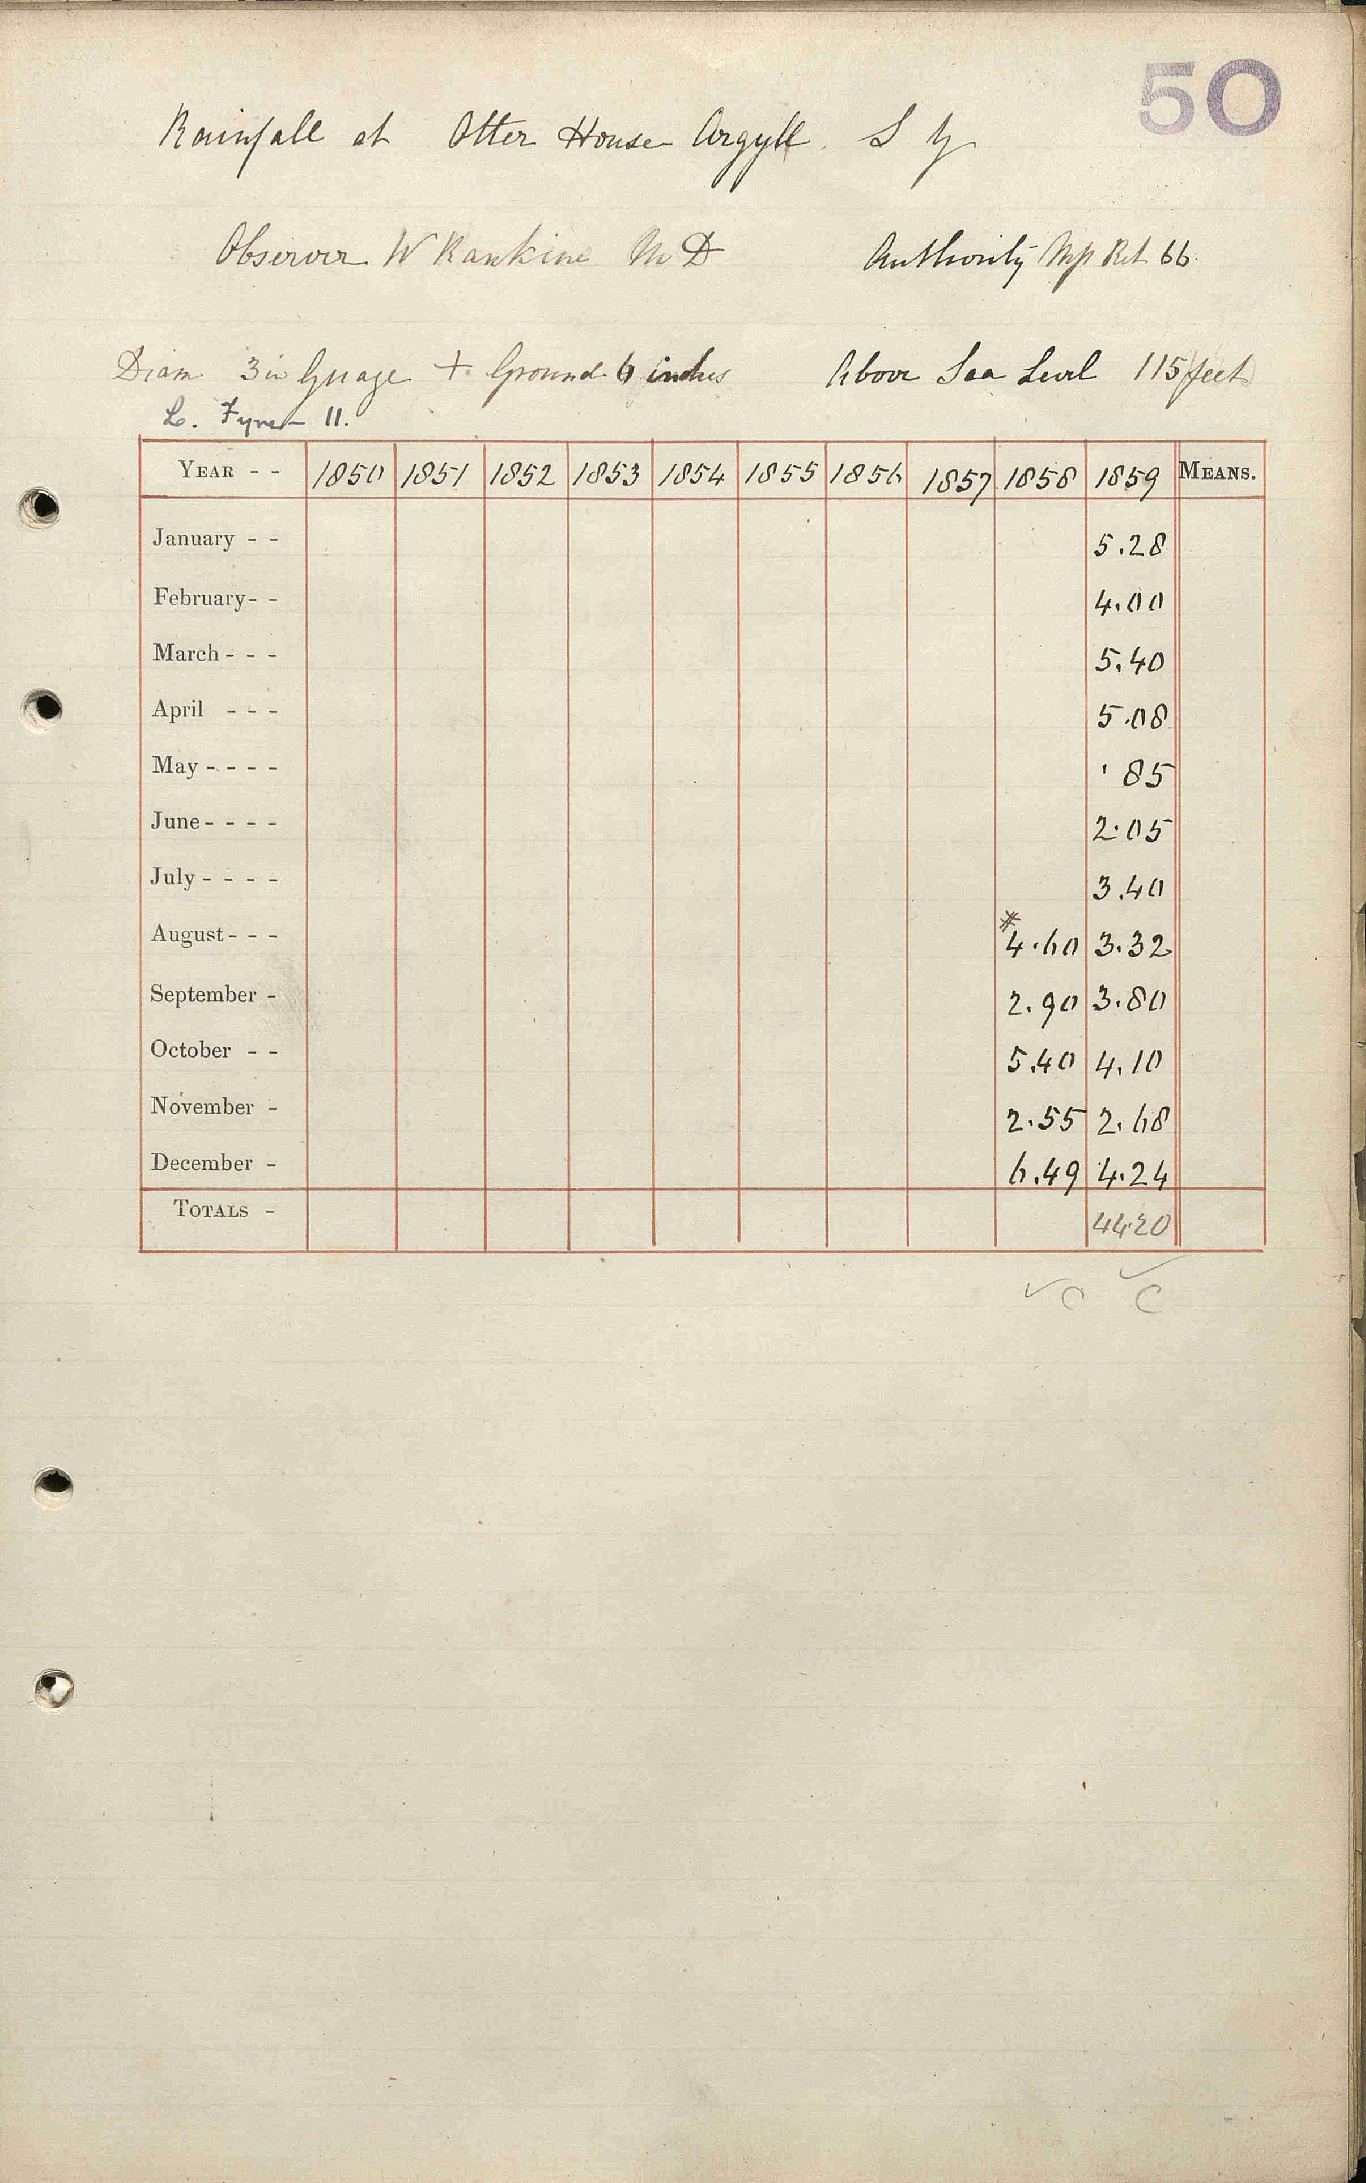 50
Rainfall at Otter House Argyll.
Observer W Rankine M D Authority Ret 66.
Diam 3 in Guage + Ground 6 inches Above Sea Level 115 feet
L. Fyne 11.
YEAR - - 1850 1851 1852 1853 1854 1855 1856 1857 1858 1859 MEANS.
January - - 5.28
February - - 4.00
March - - - 5.40
April - - - 5.08
May - - - - .85
June - - - - 2.05
July - - - - 3.40
August - - - * 4.60 3.32
September - 2.90 3.80
October - - 5.40 4.10
November - 2.55 2.68
December - 6.49 4.24
TOTALS - 44.20
✓ C ✓ C